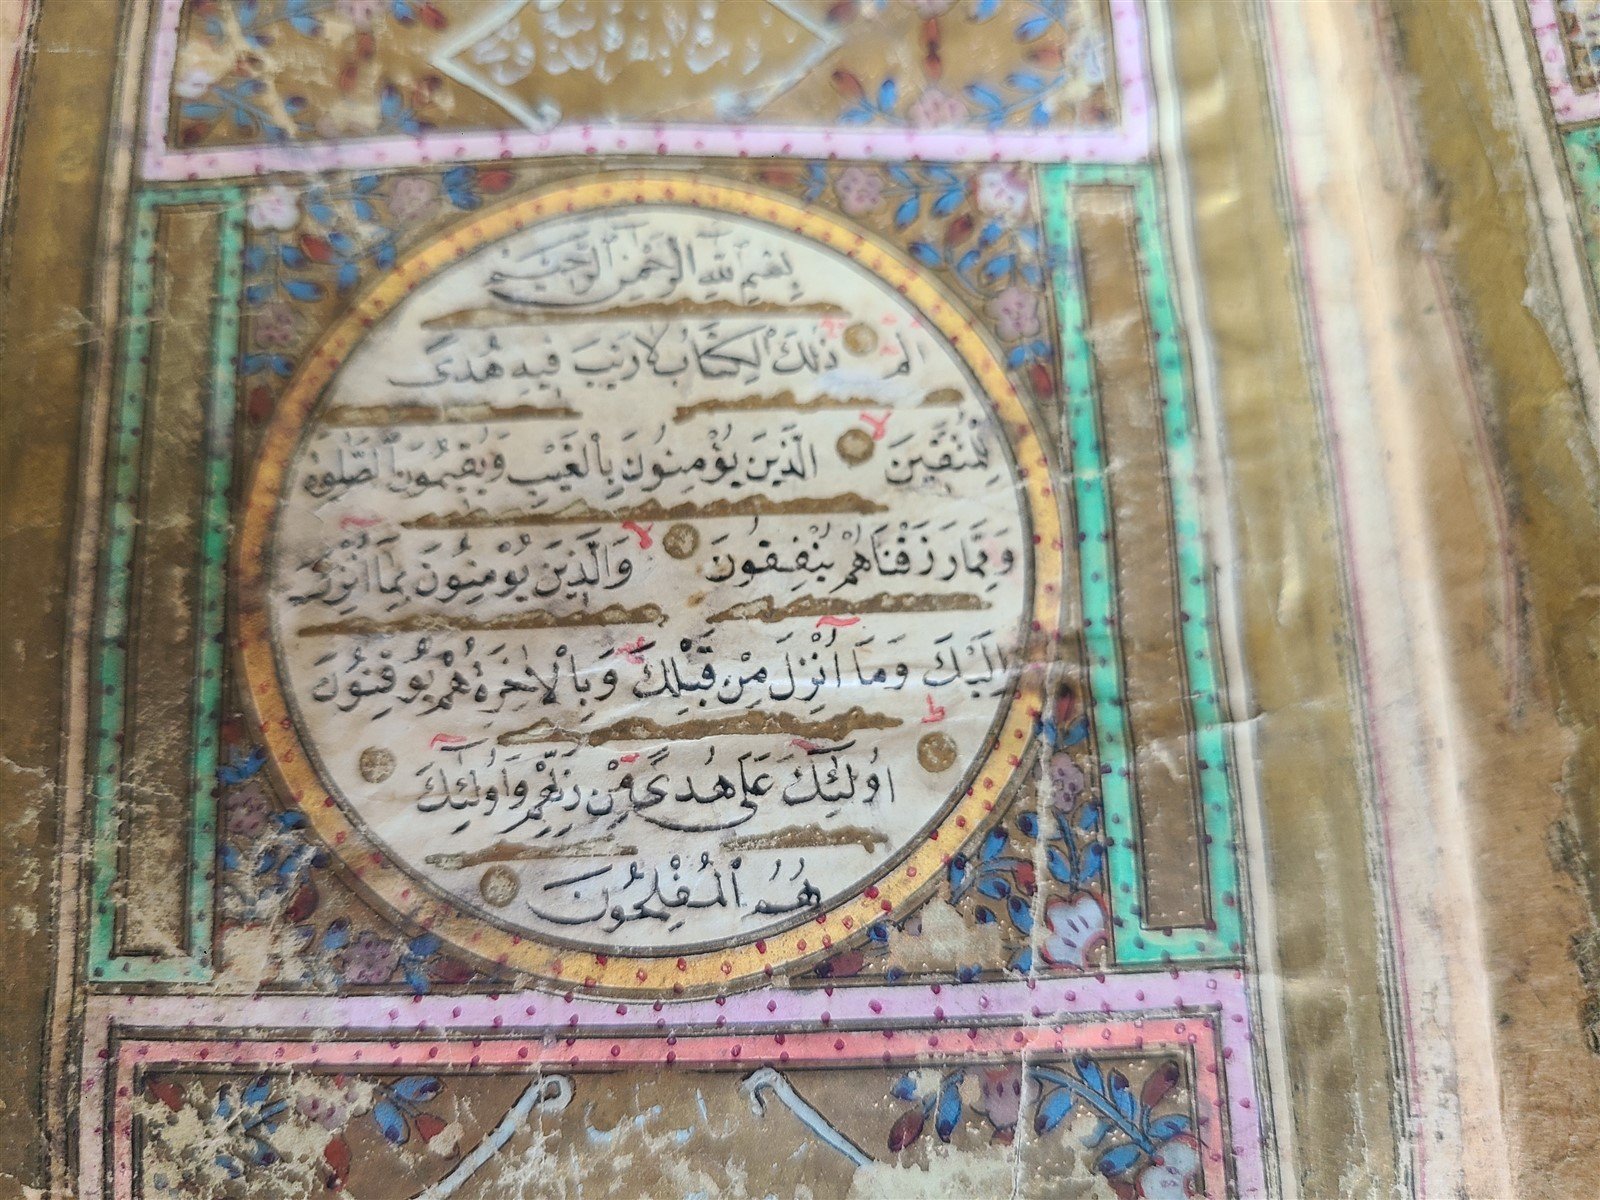 بِسْمِ اللّٰهِ الرَّحْمٰنِ الرَّحِيْمِ
الم ذٰلِكَ الْكِتَابُ لَا رَيْبَ فِيهِ هُدًى
لِلْمُتَّقِينَ الَّذِينَ يُؤْمِنُونَ بِالْغَيْبِ وَيُقِيمُونَ الصَّلٰوةَ
وَمِمَّا رَزَقْنَاهُمْ يُنْفِقُونَ وَالَّذِينَ يُؤْمِنُونَ بِمَا اُنْزِلَ
اِلَيْكَ وَمَا اُنْزِلَ مِنْ قَبْلِكَ وَبِالْاٰخِرَةِ هُمْ يُوقِنُونَ
اُولٰئِكَ عَلٰى هُدًى مِنْ رَبِّهِمْ وَاُولٰئِكَ
هُمُ الْمُفْلِحُونَ